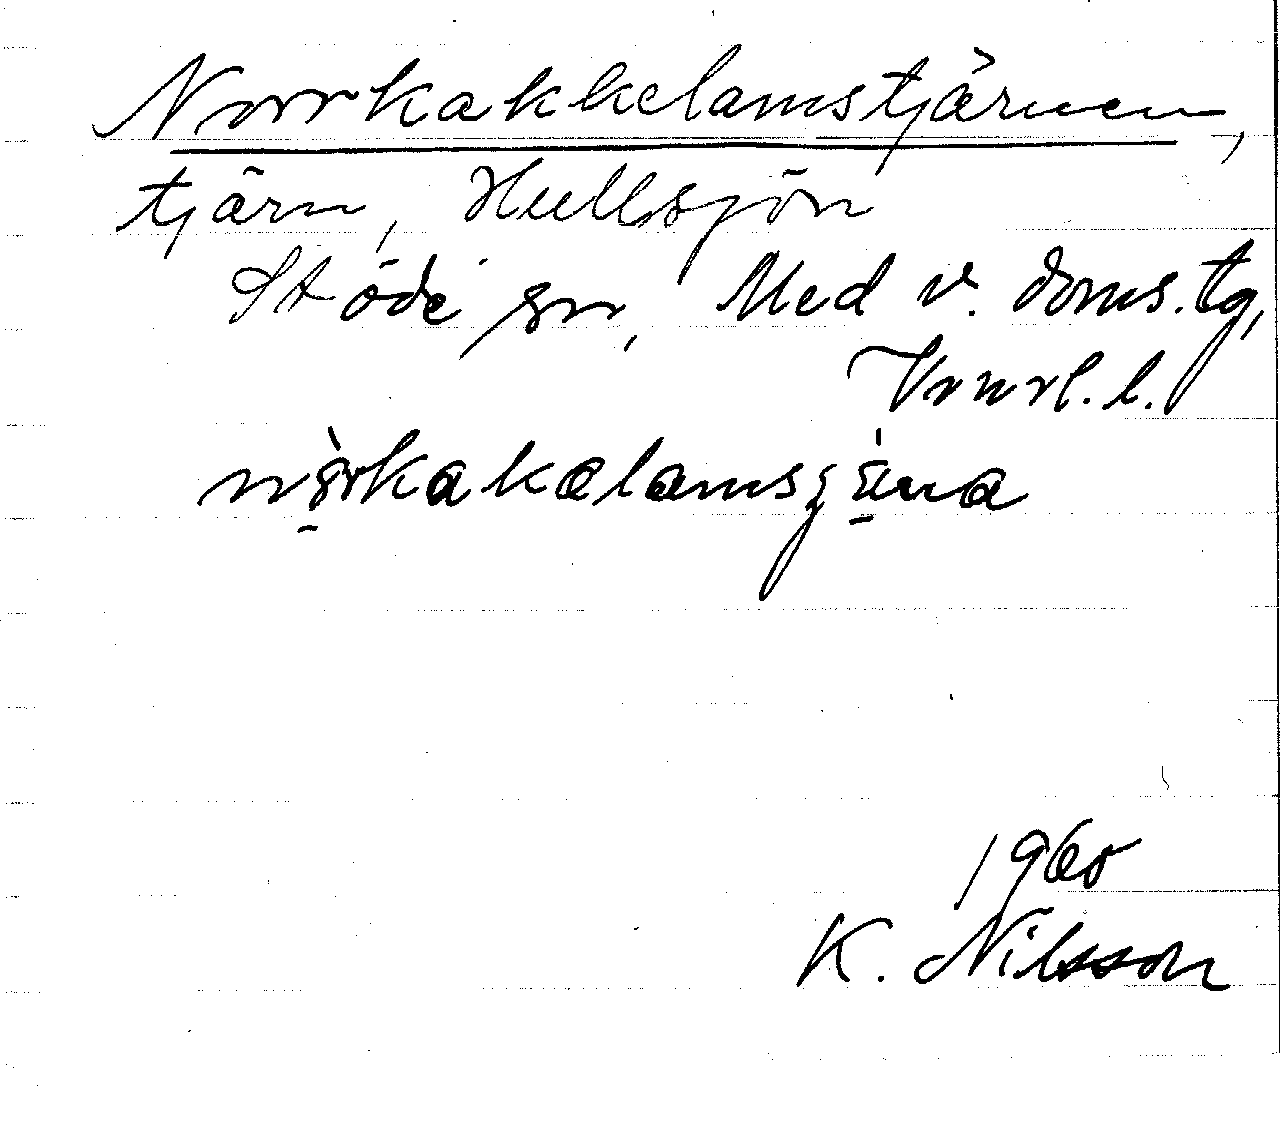 Norrkakkelamstjärnen,
tjärn, Hullsjön
Stöde sn, Med v. doms. tg,
Vnrl. l.
1960
K. Nilsson